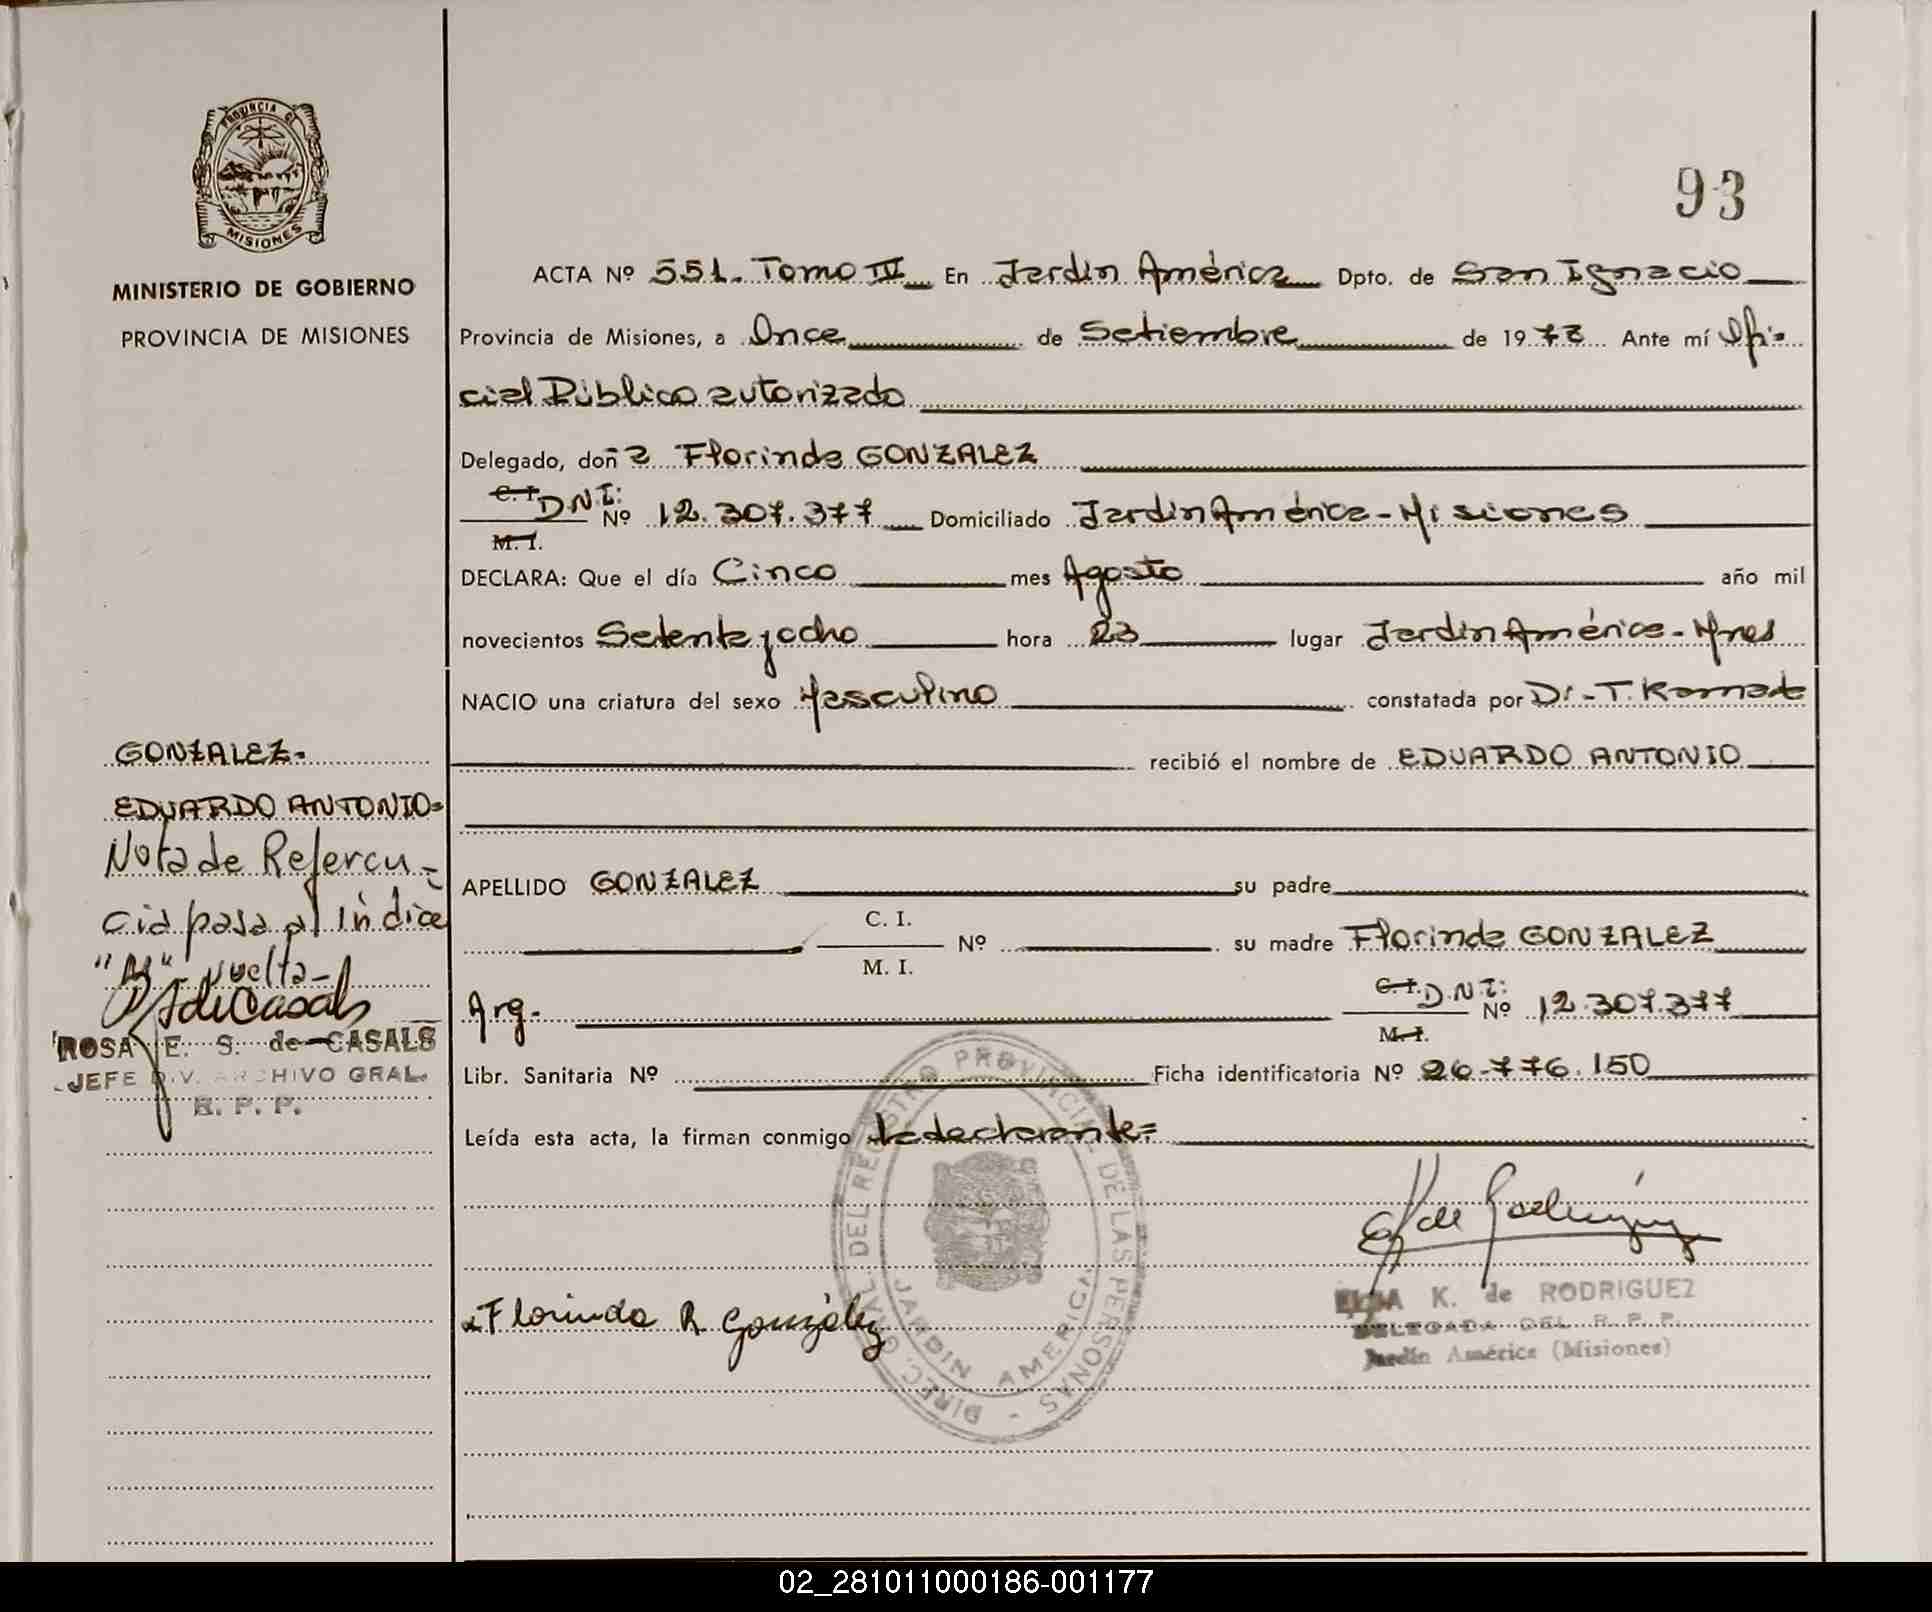 PROVINCIA DE
MISIONES
MINISTERIO DE GOBIERNO
PROVINCIA DE MISIONES
93
ACTA Nº 551. Tomo III En Jardín América Dpto. de San Ignacio
Provincia de Misiones, a Once de Setiembre de 1978 Ante mí Ofi-
cial Público autorizado
Delegado, doña Florinda GONZALEZ
C. I. D.N.I:
Nº 12.307.377 Domiciliado Jardín América-Misiones
M. I.
DECLARA: Que el día Cinco mes Agosto año mil
novecientos Setenta y ocho hora 23 lugar Jardín América-Mnes
NACIO una criatura del sexo Masculino constatada por Dr-T.
recibió el nombre de EDUARDO ANTONIO
APELLIDO GONZALEZ su padre
C. I.
Nº su madre Florinda GONZALEZ
M. I.
Arg.
C. I. D.N.I:
Nº 12.307.377
M. I.
Libr. Sanitaria Nº Ficha identificatoria Nº 26.776.150
Leída esta acta, la firman conmigo la declarante=
GONZALEZ-
EDUARDO ANTONIO=
Nota de Referen-
cia pasa al Indice
vuelta-
de Casals
ROSA E. S. de CASALS
JEFE DIV. ARCHIVO GRAL.
R. P. P.
DIREC. GRAL. DEL REGISTRO PROVINCIAL DE LAS PERSONAS -
JARDIN AMERICA
Florinda R González
E K de Rodriguez
ELBA K. de RODRIGUEZ
DELEGADA DEL R. P. P.
Jardín América (Misiones)
02_281011000186-001177